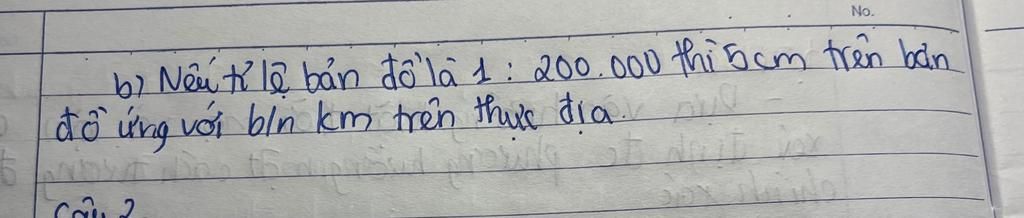 No.
b) Nếu tỉ lệ bản đồ là 1 : 200.000 thì 5cm trên bản
đồ ứng với b/n km trên thực địa.
Câu 2